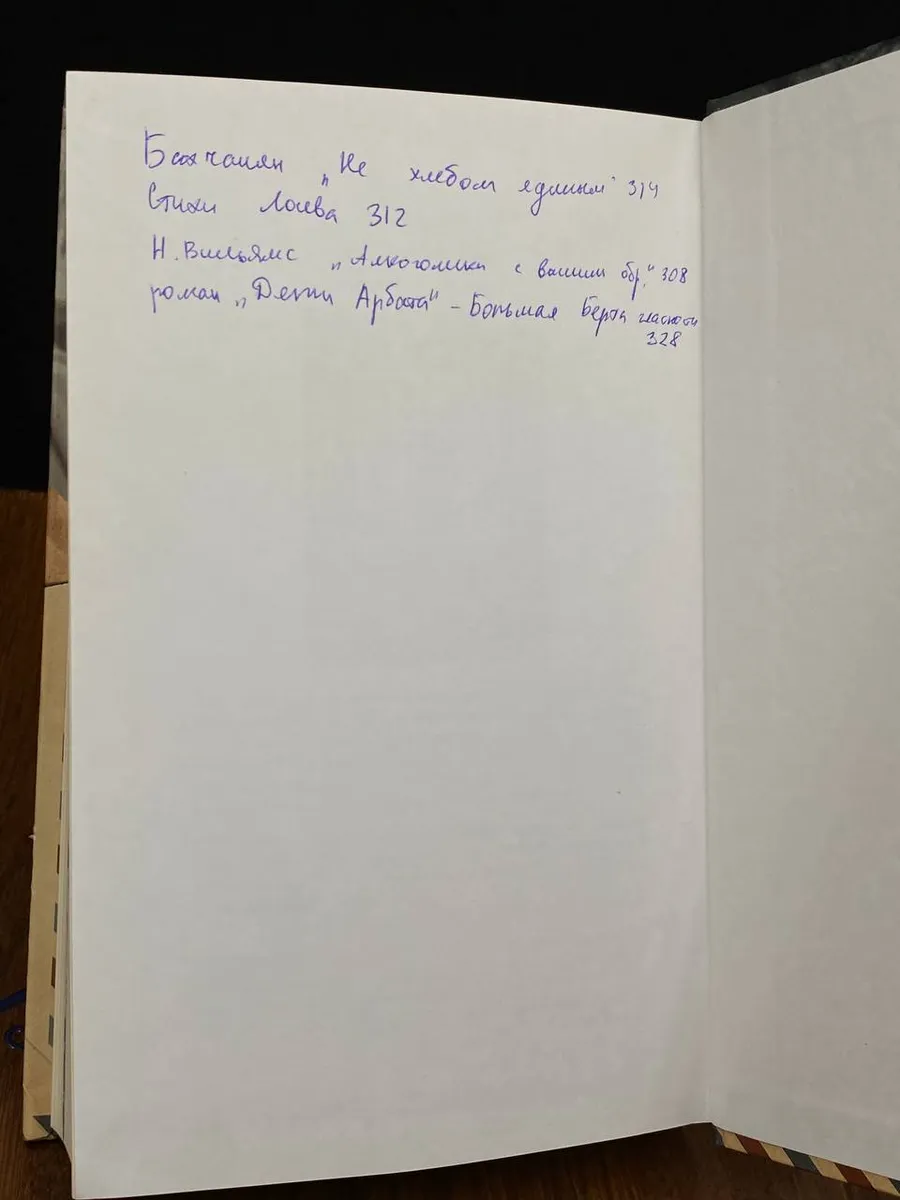 Бахчанян „Не хлебом единым" 314
Стихи Лосева 312
Н. Вильямс „Алкоголики с высшим обр." 308
роман „Дети Арбата" – Большая Берта гласности
328